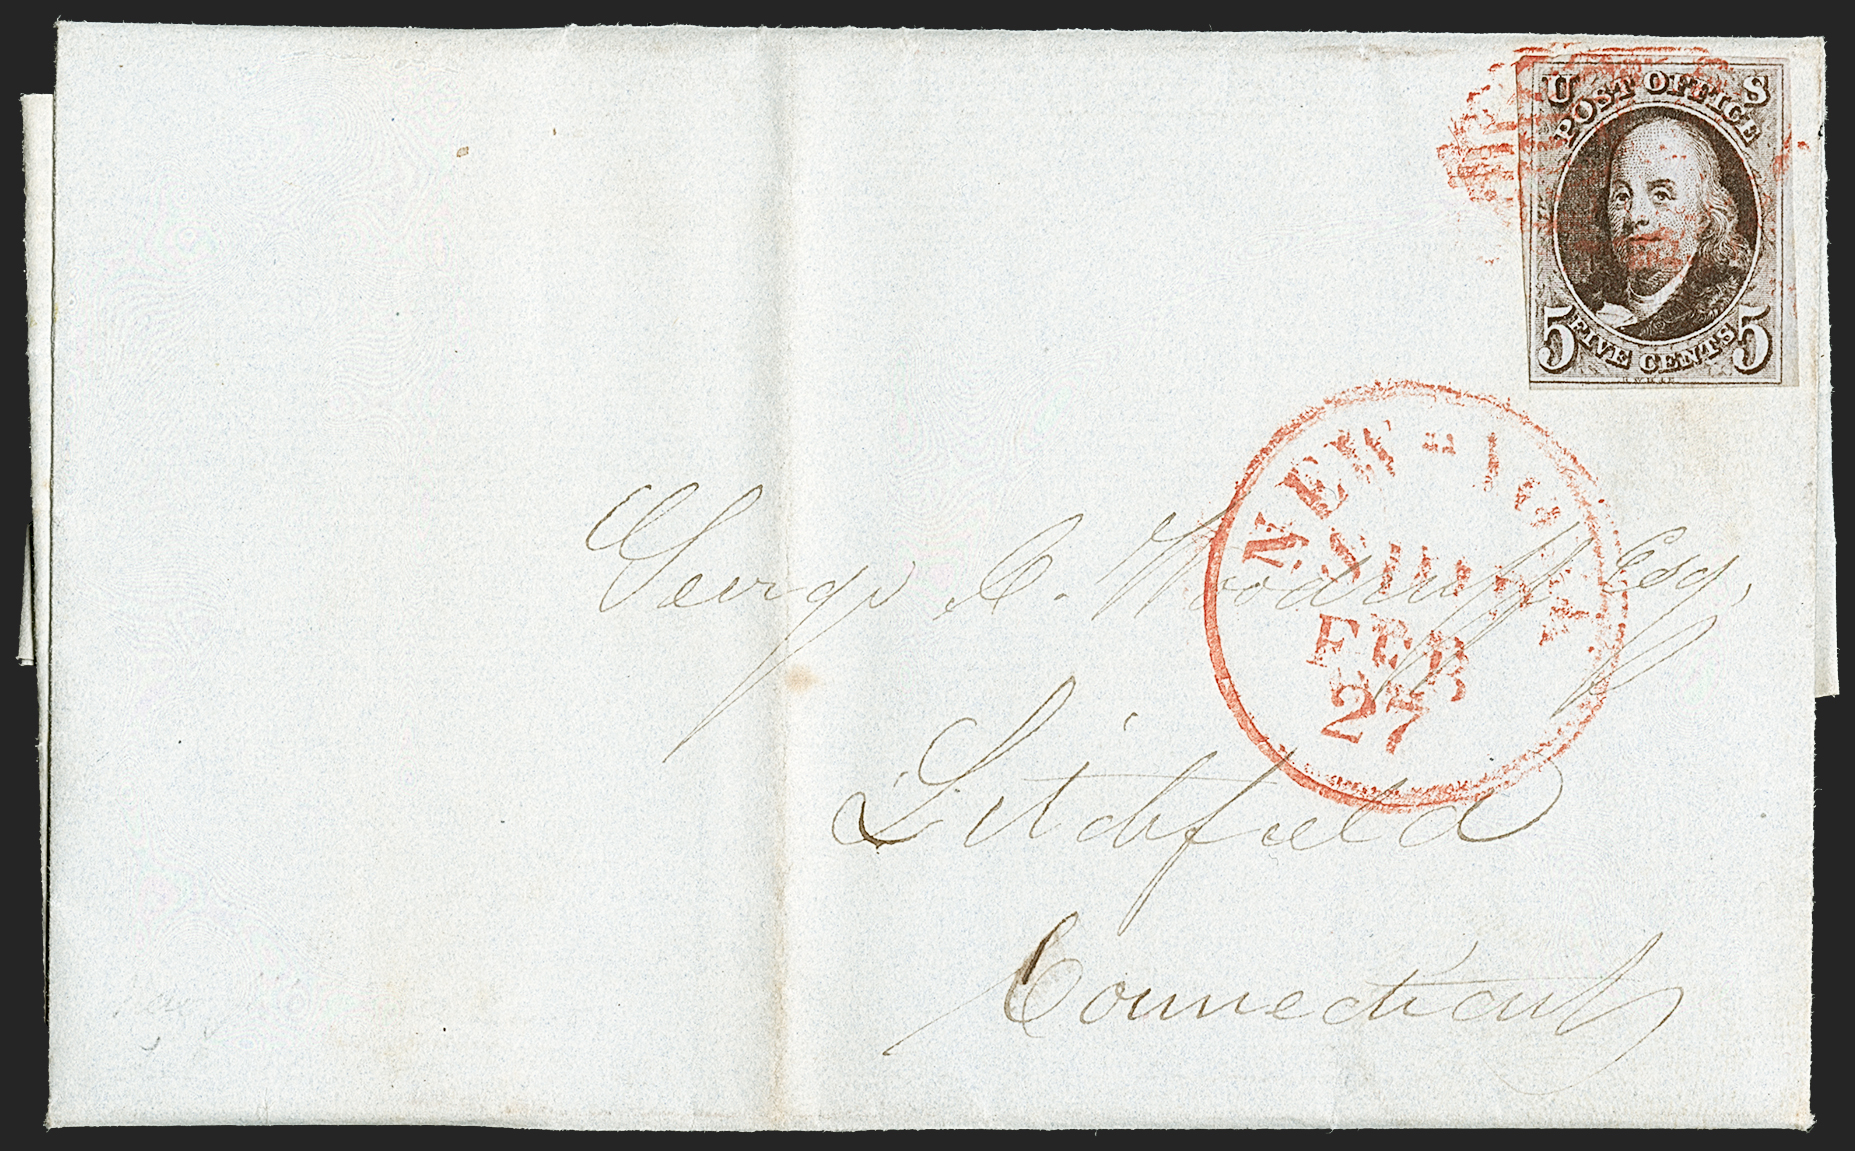 U S
POST OFFICE
5 FIVE CENTS 5
NEW-YO
FEB
27
George C. Woodruff Esq,
Litchfield
Connecticut